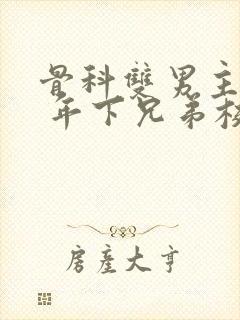 骨科雙男主
年下兄弟
房產大亨